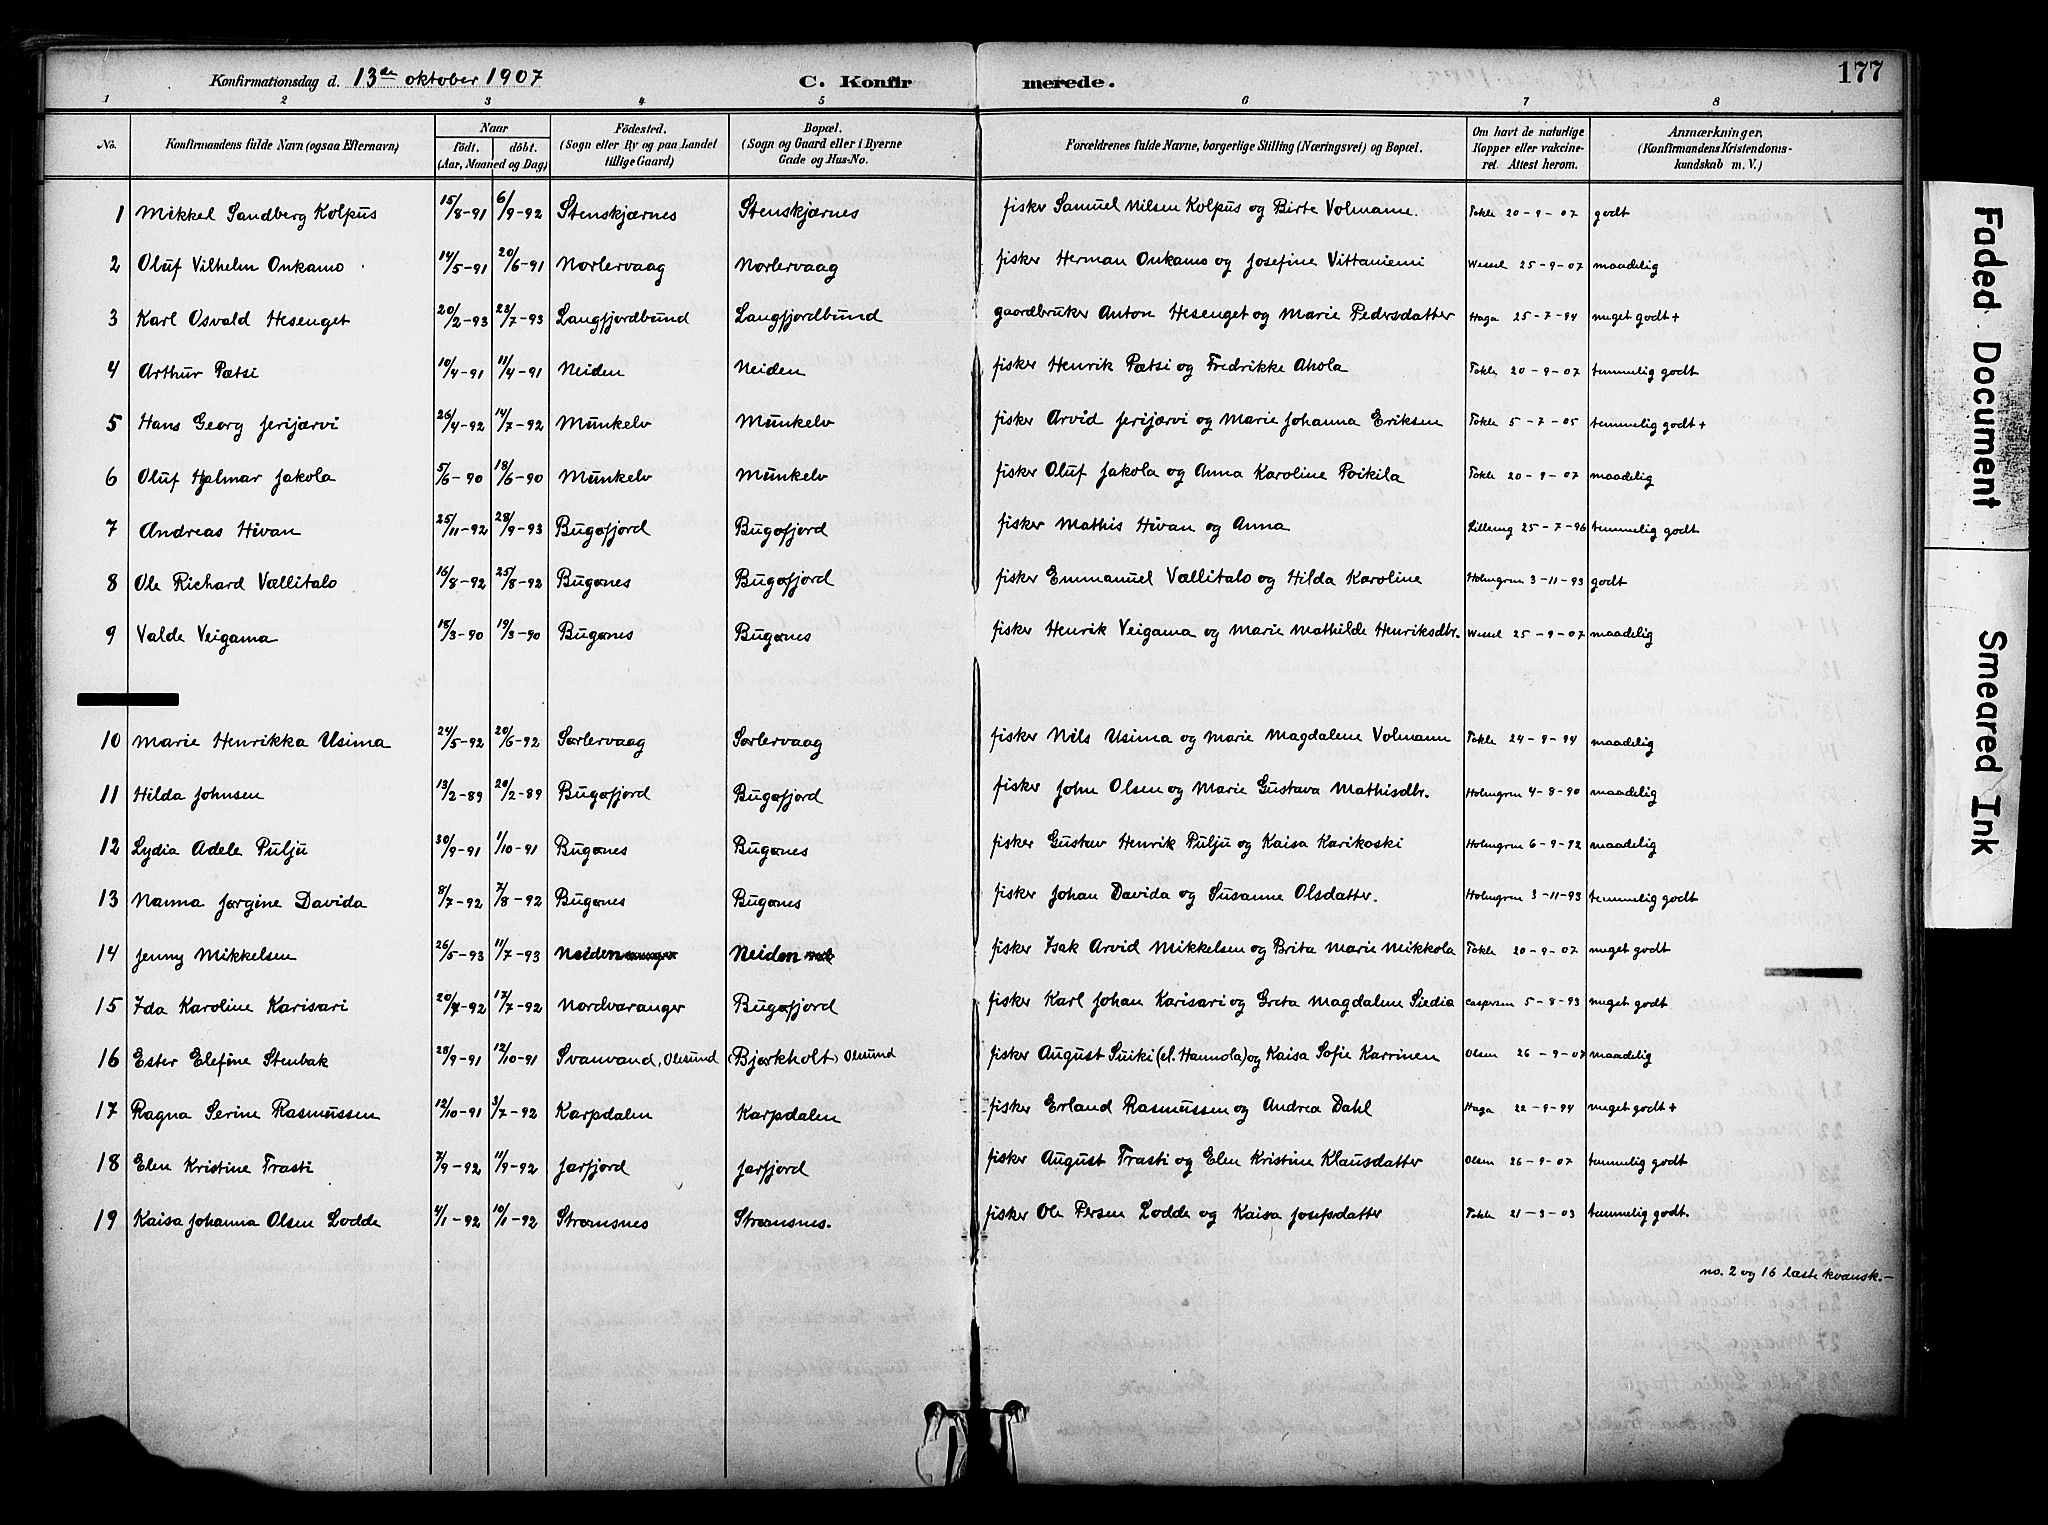 Konfirmationsdag d. 13de oktober 1907 C. Konfirmerede. 177
1 2 3 4 5 6 7 8
No. Konfirmandens fulde Navn (ogsaa Efternavn) Naar født. døbt. (Aar, Maaned og Dag) Födested. (Sogn eller By og paa Landet tillige Gaard) Bopæl. (Sogn og Gaard eller i Byerne Gade og Hus-No. Forældrenes fulde Navne, borgerlige Stilling (Næringsvei) og Bopæl. Om havt de naturlige Kopper eller vakcineret. Attest herom. Anmærkninger, (Konfirmandens Kristendomskundskab m. V.)
1 Mikkel Sandberg Kolpus 15/8-91 6/9-92 Stenskjærnes Stenskjærnes fisker Samuel Nilsen Kolpus og Birte Volmann. Tokle 20-9-07 godt
2 Oluf Vilhelm Onkamo 14/5-91 20/6-91 Norlervaag Norlervaag fisker Herman Onkamo og Josefine Vittaniemi Wessel 25-9-07 maadelig
3 Karl Osvald Hesenget 20/2-93 23/7-93 Langfjordbund Langfjordbund gaardbruker Anton Hesenget og Marie Pedersdatter Haga 25-7-94 meget godt+
4 Arthur Pætsi 10/4-91 11/4-91 Neiden Neiden fisker Henrik Pætsi og Fredrikke Ahola Tokle 20-9-07 temmelig godt
5 Hans Georg Jerijærvi 26/4-92 14/7-92 Munkelv Munkelv fisker Arvid Jerijærvi og Marie Johanna Eriksen Tokle 5-7-05 temmelig godt+
6 Oluf Hjalmar Jakola 5/6-90 18/6-90 Munkelv Munkelv fisker Oluf Jakola og Anna Karoline Poikila Tokle 20-9-07 maadelig
7 Andreas Hivan 25/11-92 28/9-93 Bugøfjord Bugøfjord fisker Mathis Hivan og Anna Lilleeng 25-7-96 temmelig godt
8 Ole Richard Vællitalo 16/8-92 25/8-92 Bugønes Bugøfjord fisker Emmanuel Vællitalo og Hilda Karoline Holmgren 3-11-93 godt
9 Valde Veigama 18/3-90 19/3-90 Bugønes Bugønes fisker Henrik Veigama og Marie Mathilde Henriksdtr. Wessel 25-9-07 maadelig
10 Marie Henrikka Usima 24/5-92 20/6-92 Sørlervaag Sørlervaag fisker Nils Usima og Marie Magdalene Volmann Tokle 24-9-94 maadelig
11 Hilda Johnsen 13/2-89 20/2-89 Bugøfjord Bugøfjord fisker John Olsen og Marie Gustava Mathisdtr. Holmgren 4-8-90 maadelig
12 Lydia Adele Pulju 30/9-91 1/10-91 Bugønes Bugønes fisker Gustav Henrik Pulju og Kaisa Karikoski Holmgren 6-9-92 maadelig
13 Nanna Jørgine Davida 8/7-92 7/8-92 Bugønes Bugønes fisker Johan Davida og Susanne Olsdatter. Holmgren 3-11-93 temmelig godt
14 Jenny Mikkelsen 26/5-93 11/7-93 Neiden Neiden fisker Isak Arvid Mikkelsen og Brita Marie Mikkola Tokle 20-9-07 meget godt
15 Ida Karoline Karisari 20/4-92 17/7-92 Nordvaranger Bugøfjord fisker Karl Johan Karisari og Greta Magdalene Siedia Caspersen 5-8-93 meget godt
16 Ester Elefine Stenbak 28/9-91 12/10-91 Svanvand, Olesund (Bjørkholt) Olesund fisker August Suiki (el. Hannola) og Kaisa Sofie Karrinen Olsen 26-9-07 maadelig
17 Ragna Serine Rasmussen 12/10-91 3/7-92 Karpdalen Karpdalen fisker Erland Rasmussen og Andrea Dahl Haga 22-9-94 meget godt+
18 Elen Kristine Trasti 7/9-92 11/9-92 Jarfjord Jarfjord fisker August Trasti og Elen Kristine Klausdatter Olsen 26-9-07 temmelig godt
19 Kaisa Johanna Olsen Lodde 4/1-92 10/1-92 Strømsnes Strømsnes. fisker Ole Persen Lodde og Kaisa Josefsdatter Tokle 21-3-03 temmelig godt.
no. 2 og 16 læste kvænsk.-
Faded Document
Smeared Ink